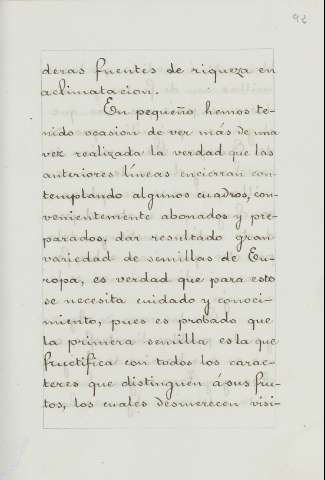 92
deras fuentes de riqueza en
aclimatacion.
En pequeño hemos te-
nido ocasion de ver más de una
vez realizada la verdad que las
anteriores líneas encierran con-
templando algunos cuadros, con-
venientemente abonados y pre-
parados, dar resultado gran
variedad de semillas de Eu-
ropa, es verdad que para esto
se necesita cuidado y conoci-
miento, pues es probado que
la primera semilla es la que
fructifica con todos los carac-
teres que distinguen á sus fru-
tos, los cuales desmerecen visi-